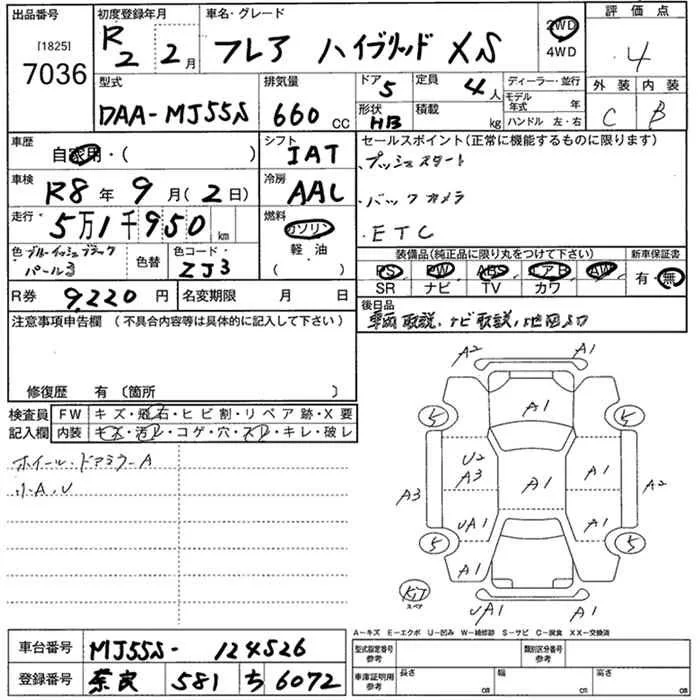 出品番号 [1825] 7036
初度登録年月 R2 2月
車名・グレード フレア ハイブリッド XS
2WD
4WD
評価点 4
型式 DAA-MJ55S
排気量 660 CC
ドア 5
定員 4人
形状 HB
積載 kg
ディーラー・並行
モデル年式 年
ハンドル 左・右
外装 C
内装 B
車歴 自家用・( )
シフト IAT
車検 R8年 9月(2日)
冷房 AAC
走行 5万1千950 km
燃料 ガソリン
軽油
( )
色 ブルーイッシュブラックパール3
色替
色コード ZJ3
セールスポイント(正常に機能するものに限ります)
プッシュスタート
バックカメラ
ETC
装備品(純正品に限り丸をつけて下さい)
PS PW ABS エアB AW
SR ナビ TV カワ
新車保証書
有・無
R券 9,220円
名変期限 月 日
後日品
車両取説、ナビ取説、
注意事項申告欄 (不具合内容等は具体的に記入して下さい)
修復歴 有 〔箇所 〕
検査員記入欄
FW キズ・飛石・ヒビ割・リペア跡・X要
内装 キズ・汚レ・コゲ・穴・スレ・キレ・破レ
ホイール・ドアミラーA
小A、U
A2 A1
A1
5 5
U2
A3
A1
A1
A3
A2
UA1
A1
5 5
A1
KIT
スペア
UA1
A1
A-キズ E-エクボ U-凹み W-補修跡 S-サビ C-腐食 XX-交換済
車台番号 MJ55S-124526
登録番号 奈良 581 ち 6072
型式指定番号 参考
類別区分番号 参考
車庫証明用 参考
長さ cm
幅 cm
高さ cm